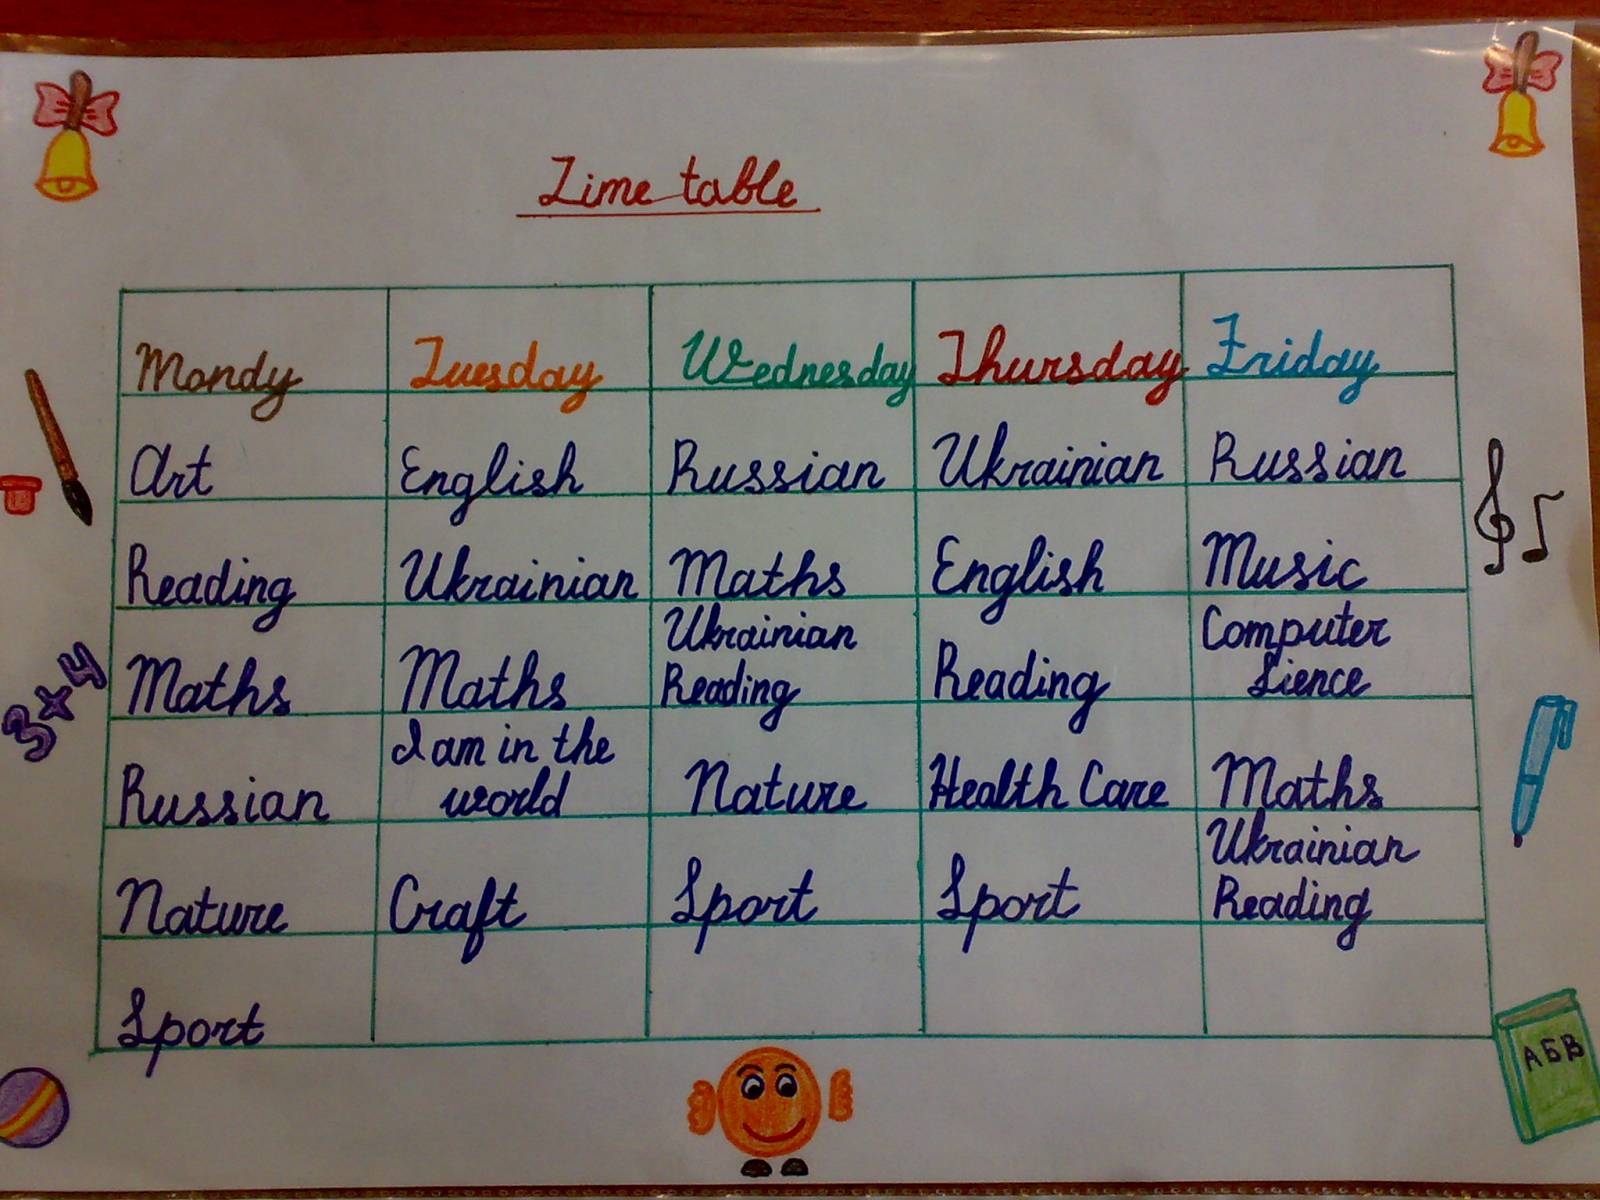 Time table
Mondy Tuesday Wednesday Thursday Friday
Art English Russian Ukrainian Russian
Reading Ukrainian Maths English Music
Maths Maths Ukrainian Reading Reading Computer Sience
Russian I am in the world Nature Health Care Maths
Nature Craft Sport Sport Ukrainian Reading
Sport
3+4
АБВ